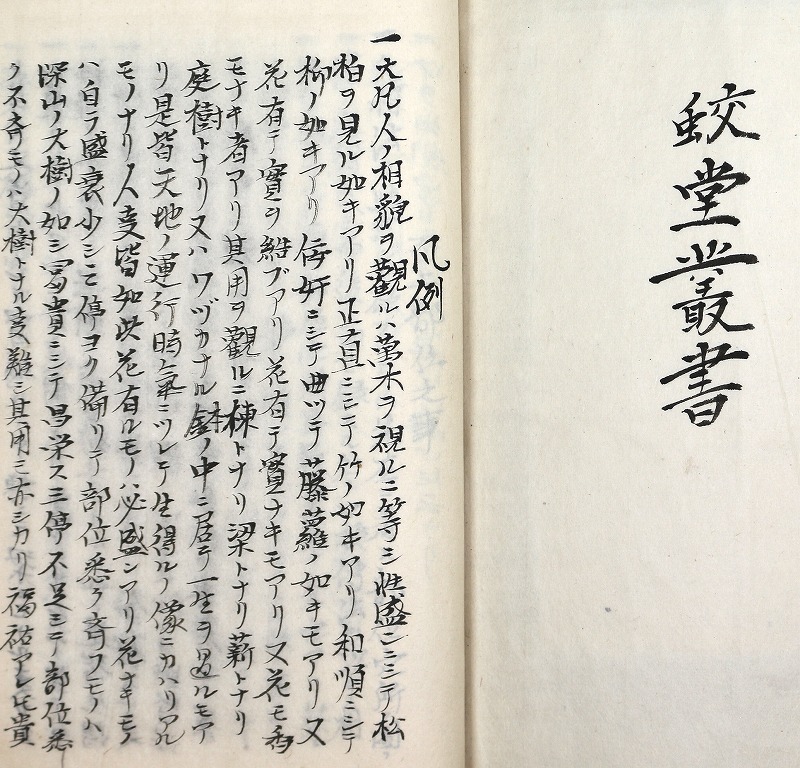 蛟堂叢書
凡例
一大凡人ノ相貌ヲ觀ルハ萬木ヲ視ルニ等シ性盛ンニシテ松
柏ヲ見ル如キアリ正直ニシテ竹ノ如キアリ和順ニシテ
柳ノ如キアリ侫奸ニシテ曲ツテ藤蘿ノ如キモアリ又
花有テ實ヲ結ブアリ花有テ實ナキモアリ又花モ香
モナキ者アリ其用ヲ觀ルニ棟トナリ梁トナリ薪トナリ
庭樹トナリ又ハワヅカナル鉢ノ中ニ居テ一生ヲ過ルモア
リ是皆天地ノ運行時氣ニツレテ生得ルノ像ニカハリアル
モノナリ人叓皆如此花有ルモノハ必盛ンアリ花ナキモノ
ハ自ラ盛衰少シ三停ヨク備リテ部位悉ク斉フモノハ
深山ノ大樹ノ如シ冨貴ニシテ昌栄ス三停不足ニシテ部位悉
ク不斉モノハ大樹トナル叓難シ其用ニ亦シカリ福祐アレ𪜈貴